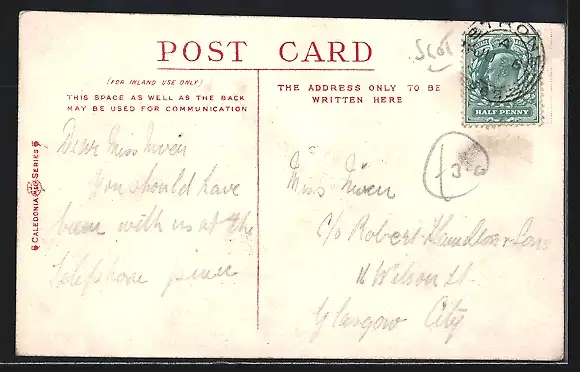 POST CARD
(FOR INLAND USE ONLY)
THIS SPACE AS WELL AS THE BACK
MAY BE USED FOR COMMUNICATION
THE ADDRESS ONLY TO BE
WRITTEN HERE
HALF PENNY
CALEDONIA SERIES
Scot
36
Dear Miss Niven
You should have
been with us at the
telephone
Miss Niven
C/o Robert Hamilton & Sons
11 Wilson St.
Glasgow City